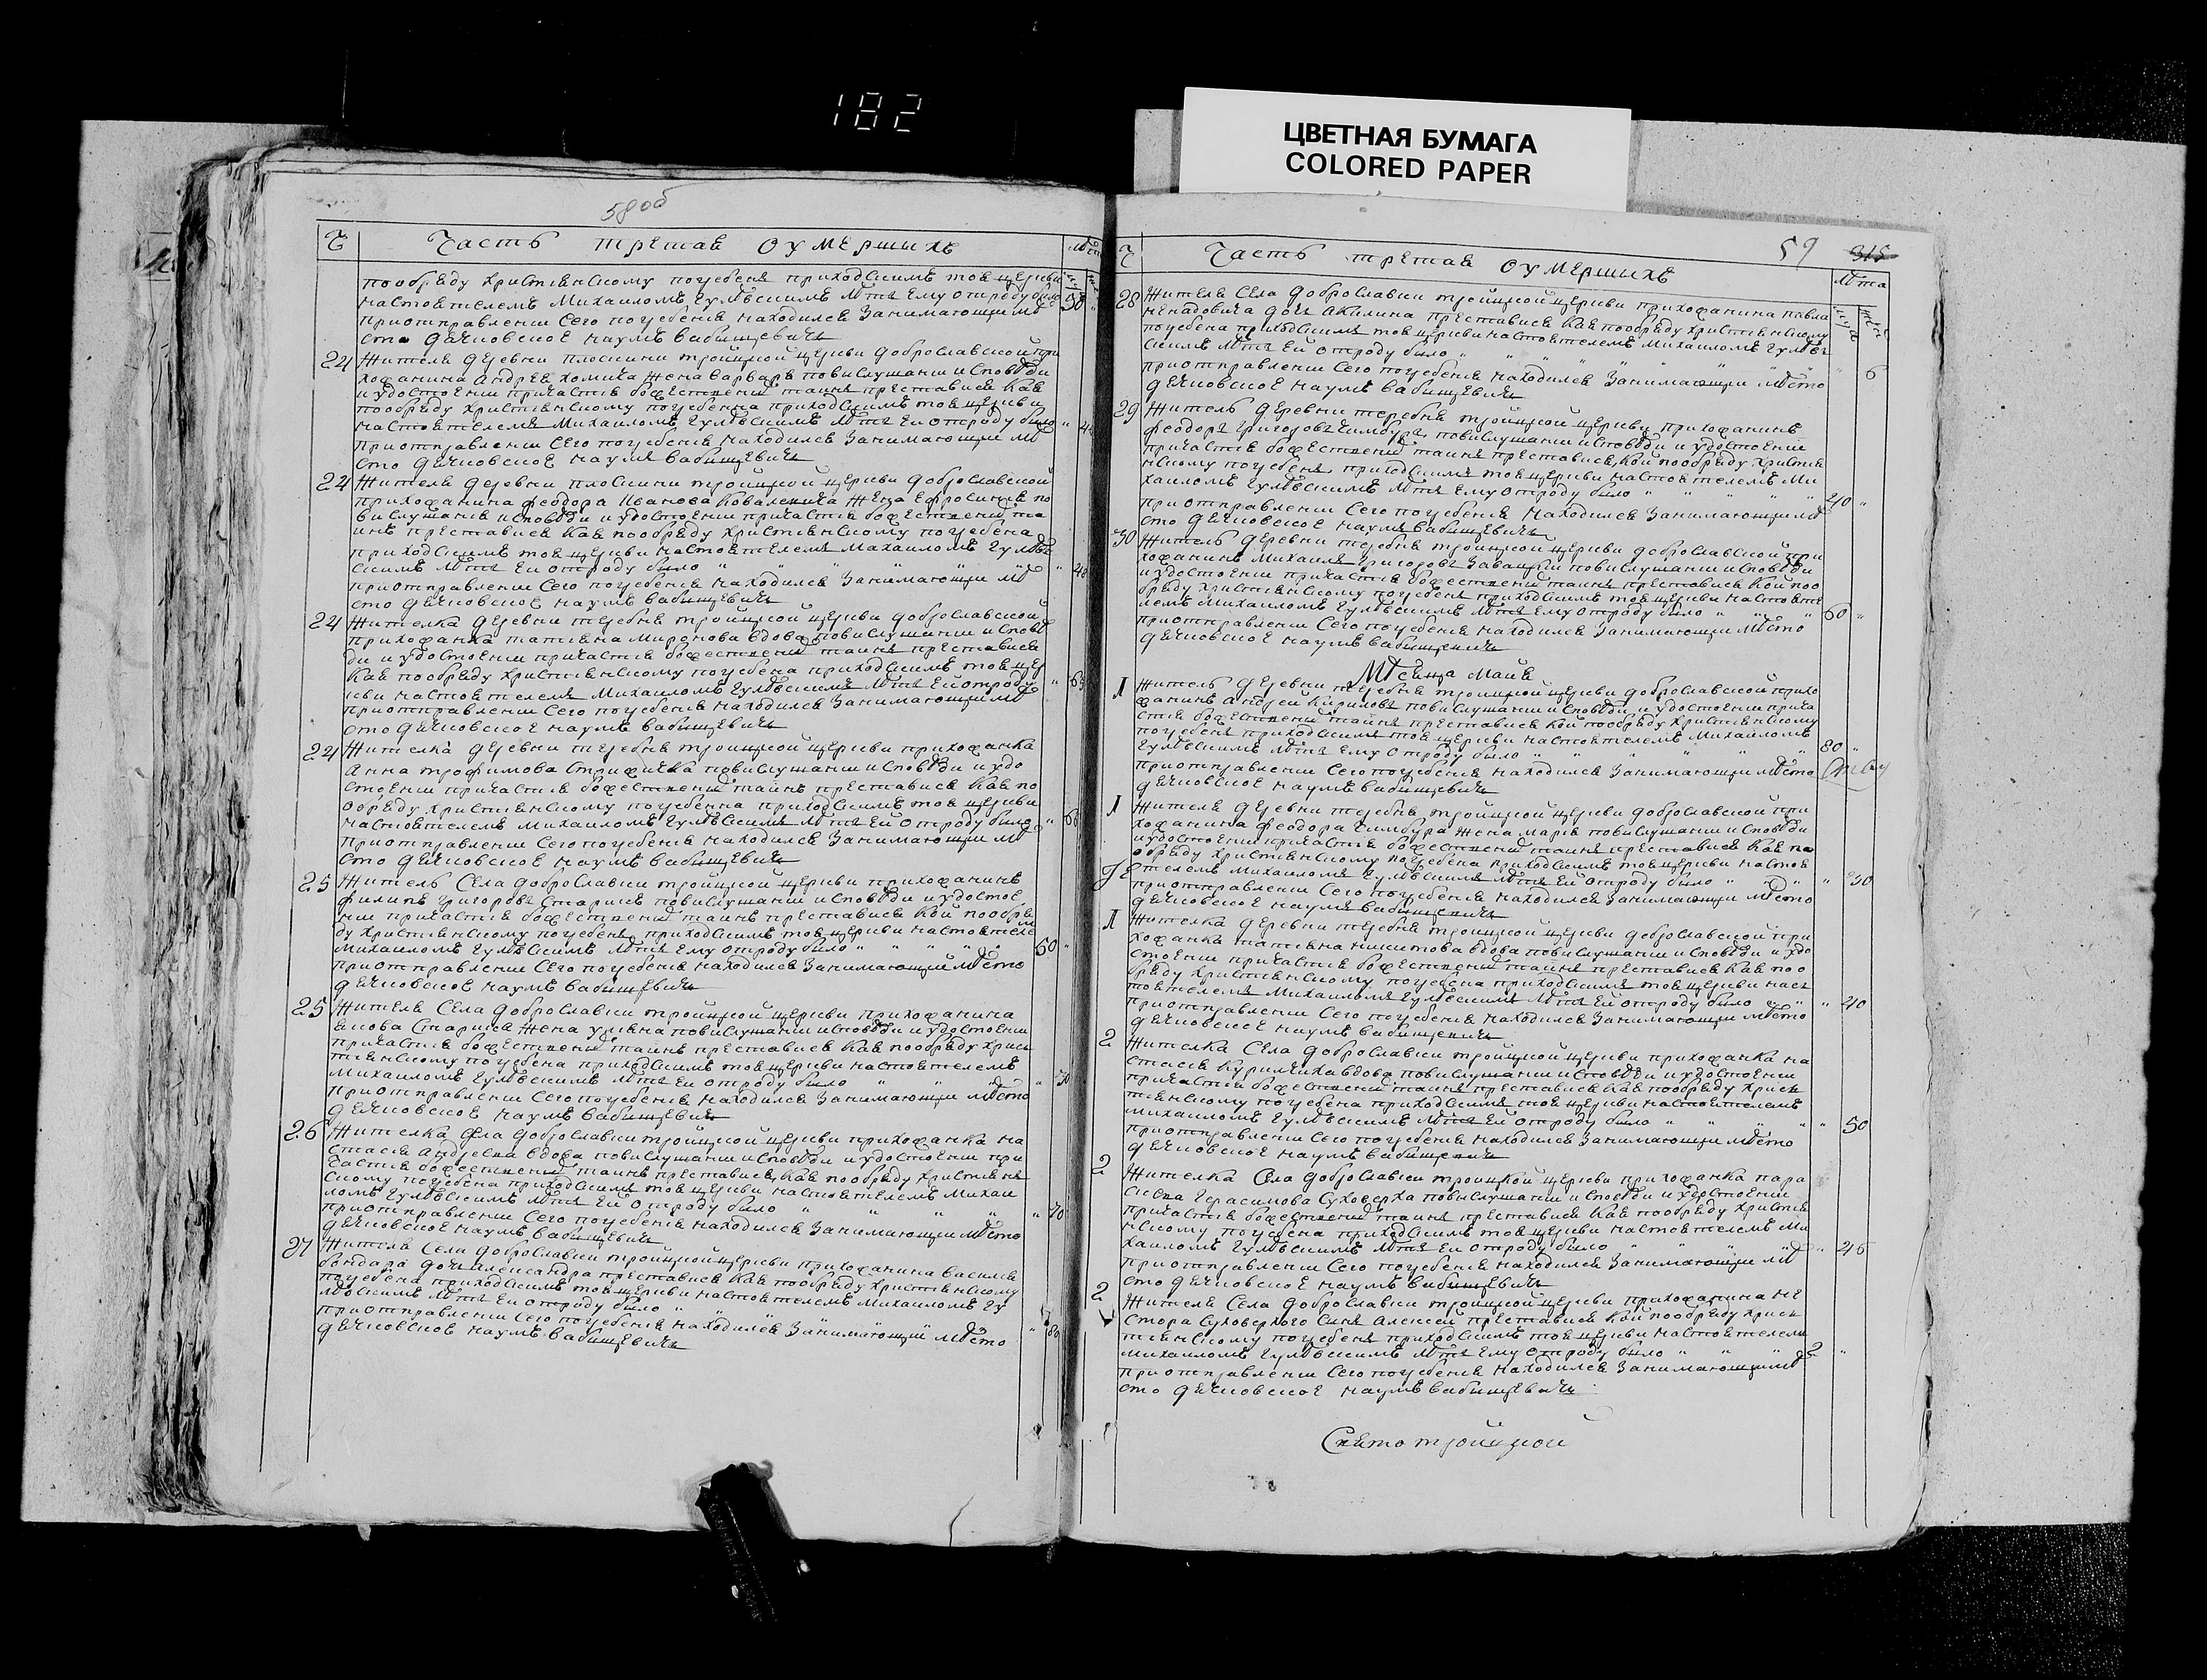 182
ЦВЕТНАЯ БУМАГА
COLORED PAPER
58об
Ч Часть третая оумершихъ
пообряду христіянскому погребенъ приходскимъ тоя церкви
настоятелемъ Михаиломъ лѣтъ Ему отроду было 50 "
приотправленіи Сего погребенія находился Занимающии мѣ
сто дячковское наумъ бабищевичъ
24 Жителя деревни плоскини троицкой церкви доброславской при
хожанина Андрея хомича жена варвара повислушаніи исповѣди
и удостоеніи причастія божественій таинъ преставися Кая
пообряду христіянскому погребенна приходскимъ тоя церкви
настоятелемъ Михаиломъ лѣтъ Ей отроду было "
приотправленіи Сего погребенія находился Занимающии мѣ
сто дячковское наумъ бабищевичъ
24 Жителя деревни плоскини троицкой церкви доброславской
прихожанина феодора Иванова Коваленича Жена Ефросинія по
вислушаніи исповѣди и удостоеніи причастія божественій та
инъ преставися Кая пообряду христіянскому погребена
приходскимъ тоя церкви настоятелемъ Михаиломъ
лѣтъ Ей отроду было " " " " " "
приотправленіи Сего погребенія находился Занимающии мѣ
сто дячковское наумъ бабищевичъ
24 Жителка деревни теребня троицкой церкви доброславской
прихожанка татіяна Миронова вдова повислушаніи исповѣ
ди и удостоеніи причастія божественій таинъ преставися
Кая пообряду христіянскому погребена приходскимъ тоя цер
кви настоятелемъ Михаиломъ лѣтъ Ей отроду "
приотправленіи Сего погребенія находился Занимающии мѣ
сто дячковское наумъ бабищевичъ
24 Жителка деревни теребня троицкой церкви прихожанка
Анна трофимова повислушаніи исповѣди и удо
стоеніи причастія божественій таинъ преставися Кая по
обряду христіянскому погребенна приходскимъ тоя церкви
настоятелемъ Михаиломъ лѣтъ Ей отроду было "
приотправленіи Сего погребенія находился Занимающии мѣ
сто дячковское наумъ бабищевичъ
25 Житель Села доброславки троицкой церкви прихожанинъ
филипъ григоровъ повислушаніи исповѣди и удостое
ніи причастія божественій таинъ преставися Кой пообря
ду христіянскому погребенъ приходскимъ тоя церкви настоятеле
Михаиломъ лѣтъ Ему отроду было " " " " " 50 "
приотправленіи Сего погребенія находился Занимающии мѣсто
дячковское наумъ бабищевичъ
25 Жителя Села доброславки троицкой церкви прихожанина
жена уліяна повислушаніи исповѣди и удостоеніи
причастія божественій таинъ преставися Кая пообряду христ
тіянскому погребена приходскимъ тоя церкви настоятелемъ
Михаиломъ лѣтъ Ей отроду было " " " "
приотправленіи Сего погребенія находился Занимающии мѣсто
дячковское наумъ бабищевичъ
26 Жителка Села доброславки троицкой церкви прихожанка на
стасія Андреева вдова повислушаніи исповѣди и удостоеніи при
частія божественій таинъ преставися Кая пообряду христіян
скому погребена приходскимъ тоя церкви настоятелемъ Михаи
ломъ лѣтъ Ей отроду было " " " " " 70
приотправленіи Сего погребенія находился Занимающии мѣсто
дячковское наумъ бабищевичъ
27 Жителя Села доброславки троицкой церкви прихожанина василія
бондара дочъ александра преставися Кая пообряду христіянскому
погребена приходскимъ тоя церкви настоятелемъ Михаиломъ
лѣтъ Ей отроду было " " " " "
приотправленіи Сего погребенія находился Занимающии мѣсто
дячковское наумъ бабищевичъ
59 315
Ч Часть третая оумершихъ лѣта
28 Жителя Села доброславки троицкой церкви прихожанина павла
ненадовича дочъ акилина преставися Кая пообряду христіянскому
погребена приходскимъ тоя церкви настоятелемъ Михаиломъ
лѣтъ Ей отроду было " " " " " " 6
приотправленіи Сего погребенія находился Занимающии мѣсто
дячковское наумъ бабищевичъ
29 Житель деревни теребня троицкой церкви прихожанинъ
феодоръ григоровъ повислушаніи исповѣди и удостоеніи
причастія божественій таинъ преставися, Кой пообряду христія
нскому погребенъ приходскимъ тоя церкви настоятелемъ Ми
хаиломъ лѣтъ Ему отроду было " " " " " 40 "
приотправленіи Сего погребенія находился Занимающии мѣ
сто дячковское наумъ бабищевичъ
30 Житель деревни теребня троицкой церкви доброславской при
хожанинъ Михаилъ григоровъ повислушаніи исповѣди
и удостоеніи причастія божественій таинъ преставися Кой поо
бряду христіянскому погребенъ приходскимъ тоя церкви настояте
лемъ Михаиломъ лѣтъ Ему отроду было " " " 60 "
приотправленіи Сего погребенія находился Занимающии мѣсто
дячковское наумъ бабищевичъ
Мѣсяца Маія
1 Житель деревни теребня троицкой церкви доброславской прихо
жанинъ андрей Кириловъ повислушаніи исповѣди и удостоеніи прича
стія божественій таинъ преставися Кой пообряду христіянскому
погребенъ приходскимъ тоя церкви настоятелемъ Михаиломъ
лѣтъ Ему отроду было " " " " " 80 "
приотправленіи Сего погребенія находился Занимающии мѣсто
дячковское наумъ бабищевичъ
1 Жителя деревни теребня троицкой церкви доброславской при
хожанина феодора жена марія повислушаніи исповѣди
и удостоеніи причастія божественій таинъ преставися Кая по
обряду христіянскому погребена приходскимъ тоя церкви настоя
телемъ Михаиломъ лѣтъ Ей отроду было " " " 30
приотправленіи Сего погребенія находился Занимающии мѣсто
дячковское наумъ бабищевичъ
1 Жителка деревни теребня троицкой церкви доброславской при
хожанка татіяна никитова вдова повислушаніи исповѣди и удо
стоеніи причастія божественій таинъ преставися Кая поо
бряду христіянскому погребена приходскимъ тоя церкви наст
тоятелемъ Михаиломъ лѣтъ Ей отроду было " " " 40
приотправленіи Сего погребенія находился Занимающии мѣсто
дячковское наумъ бабищевичъ
2 Жителка Села доброславки троицкой церкви прихожанка на
стасія вдова повислушаніи исповѣди и удостоеніи
причастія божественій таинъ преставися Кая пообряду христ
тіянскому погребена приходскимъ тоя церкви настоятелемъ
Михаиломъ лѣтъ Ей отроду было " " " " " 50
приотправленіи Сего погребенія находился Занимающии мѣсто
дячковское наумъ бабищевичъ
2 Жителка Села доброславки троицкой церкви прихожанка пара
скева Герасимова Суховерха повислушаніи исповѣди и удостоеніи
причастія божественій таинъ преставися Кая пообряду христія
нскому погребена приходскимъ тоя церкви настоятелемъ Ми
хаиломъ лѣтъ Ей отроду было " " " " " 45
приотправленіи Сего погребенія находился Занимающии мѣ
сто дячковское наумъ бабищевичъ
2 Жителя Села доброславки троицкой церкви прихожанина не
стора Суховерхого Синъ Алексей преставися Кой пообряду христ
тіянскому погребенъ приходскимъ тоя церкви настоятелемъ
Михаиломъ лѣтъ Ему отроду было " " " 2 "
приотправленіи Сего погребенія находился Занимающии мѣ
сто дячковское наумъ бабищевичъ
Свято троицкой